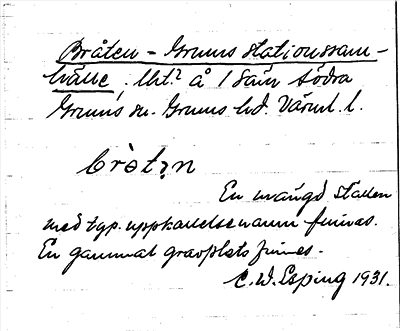 Bråten - Grums stationssam-
hälle, lht.? å 1 Sam Södra
Grums sn. Grums hd. Värml. l.
brò̀tən
En mängd ställen
med typ. uppkallelsenamn finnas.
En gammal gravplats finnes.
C. W. Esping 1931.